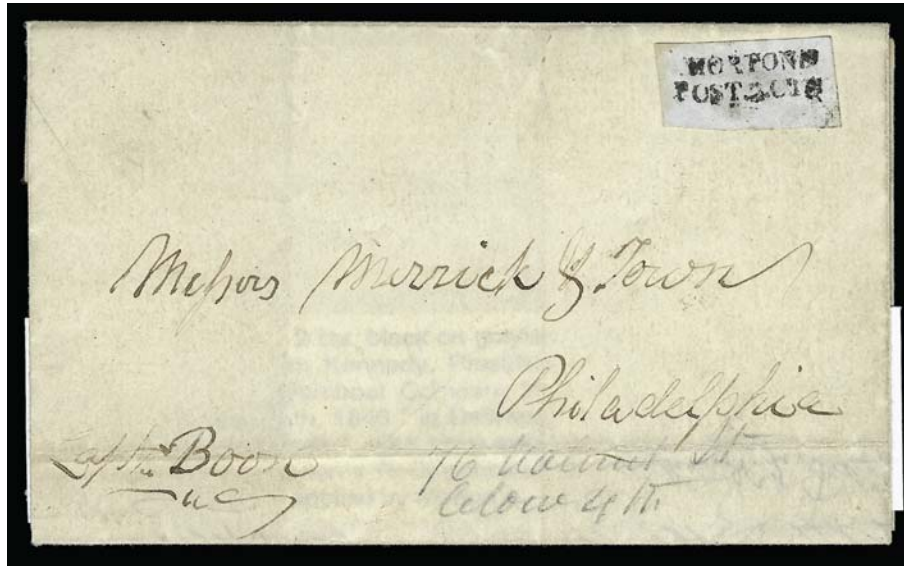 MORTONS
POST 2 CTS
Messrs Merrick & Town
Philadelphia
Boon
76 Walnut St
below 4th